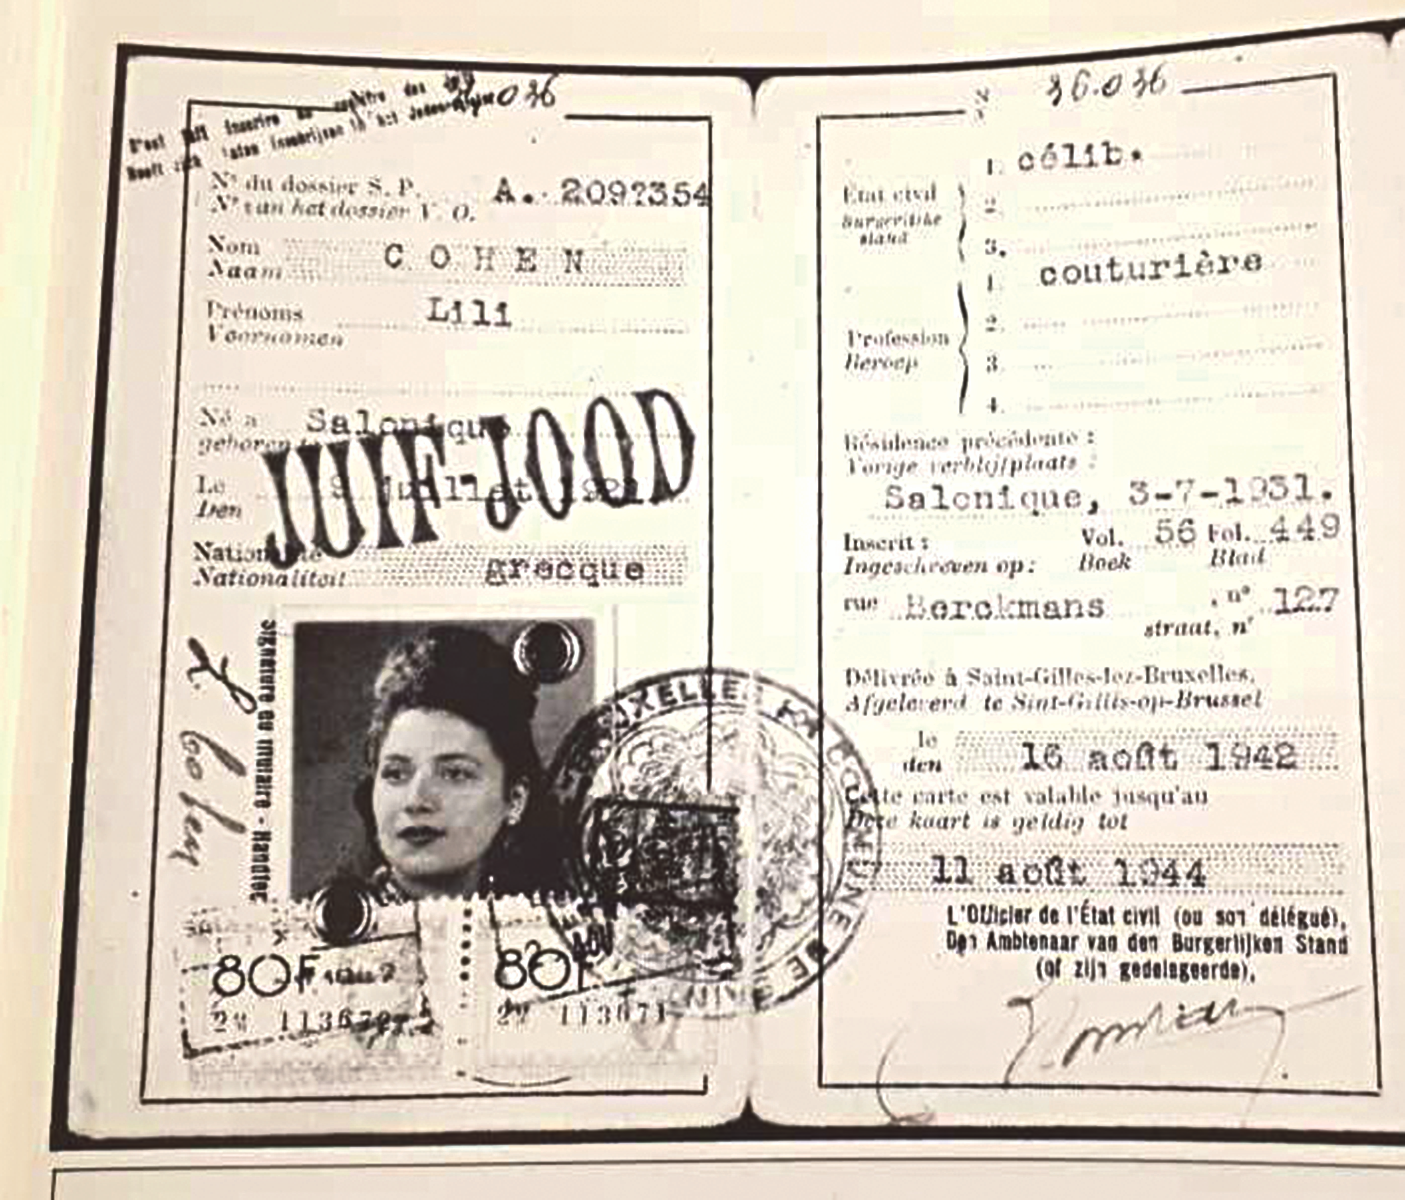 S'est fait inscrire au registre des
Heeft zich laten inschrijven in het Joden-register
N° du dossier S. P. A. 2092354
N° van het dossier V. O.
Nom COHEN
Naam
Prénoms Lili
Voornamen
Né à Salonique
geboren te
JUIF-JOOD
Le 9 juillet 1921.
Den
Nationalité grecque
Nationaliteit
Signature du titulaire - Handtec
L. Cohen
80F
80F
113671
N° 36.036
Etat civil 1. célib.
Burgerlijke stand 2.
3.
Profession 1. couturière
Beroep 2.
3.
4.
Résidence précédente :
Vorige verblijfplaats :
Salonique, 3-7-1931.
Inscrit : Vol. 56 Fol. 449
Ingeschreven op: Boek Blad
rue Berckmans , n° 127
straat, n°
Délivrée à Saint-Gilles-lez-Bruxelles,
Afgeleverd te Sint-Gillis-op-Brussel
le 16 août 1942
den
Cette carte est valable jusqu'au
Deze kaart is geldig tot
11 août 1944
L'Officier de l'État civil (ou son délégué),
Den Ambtenaar van den Burgerlijken Stand
(of zijn gedelegeerde),